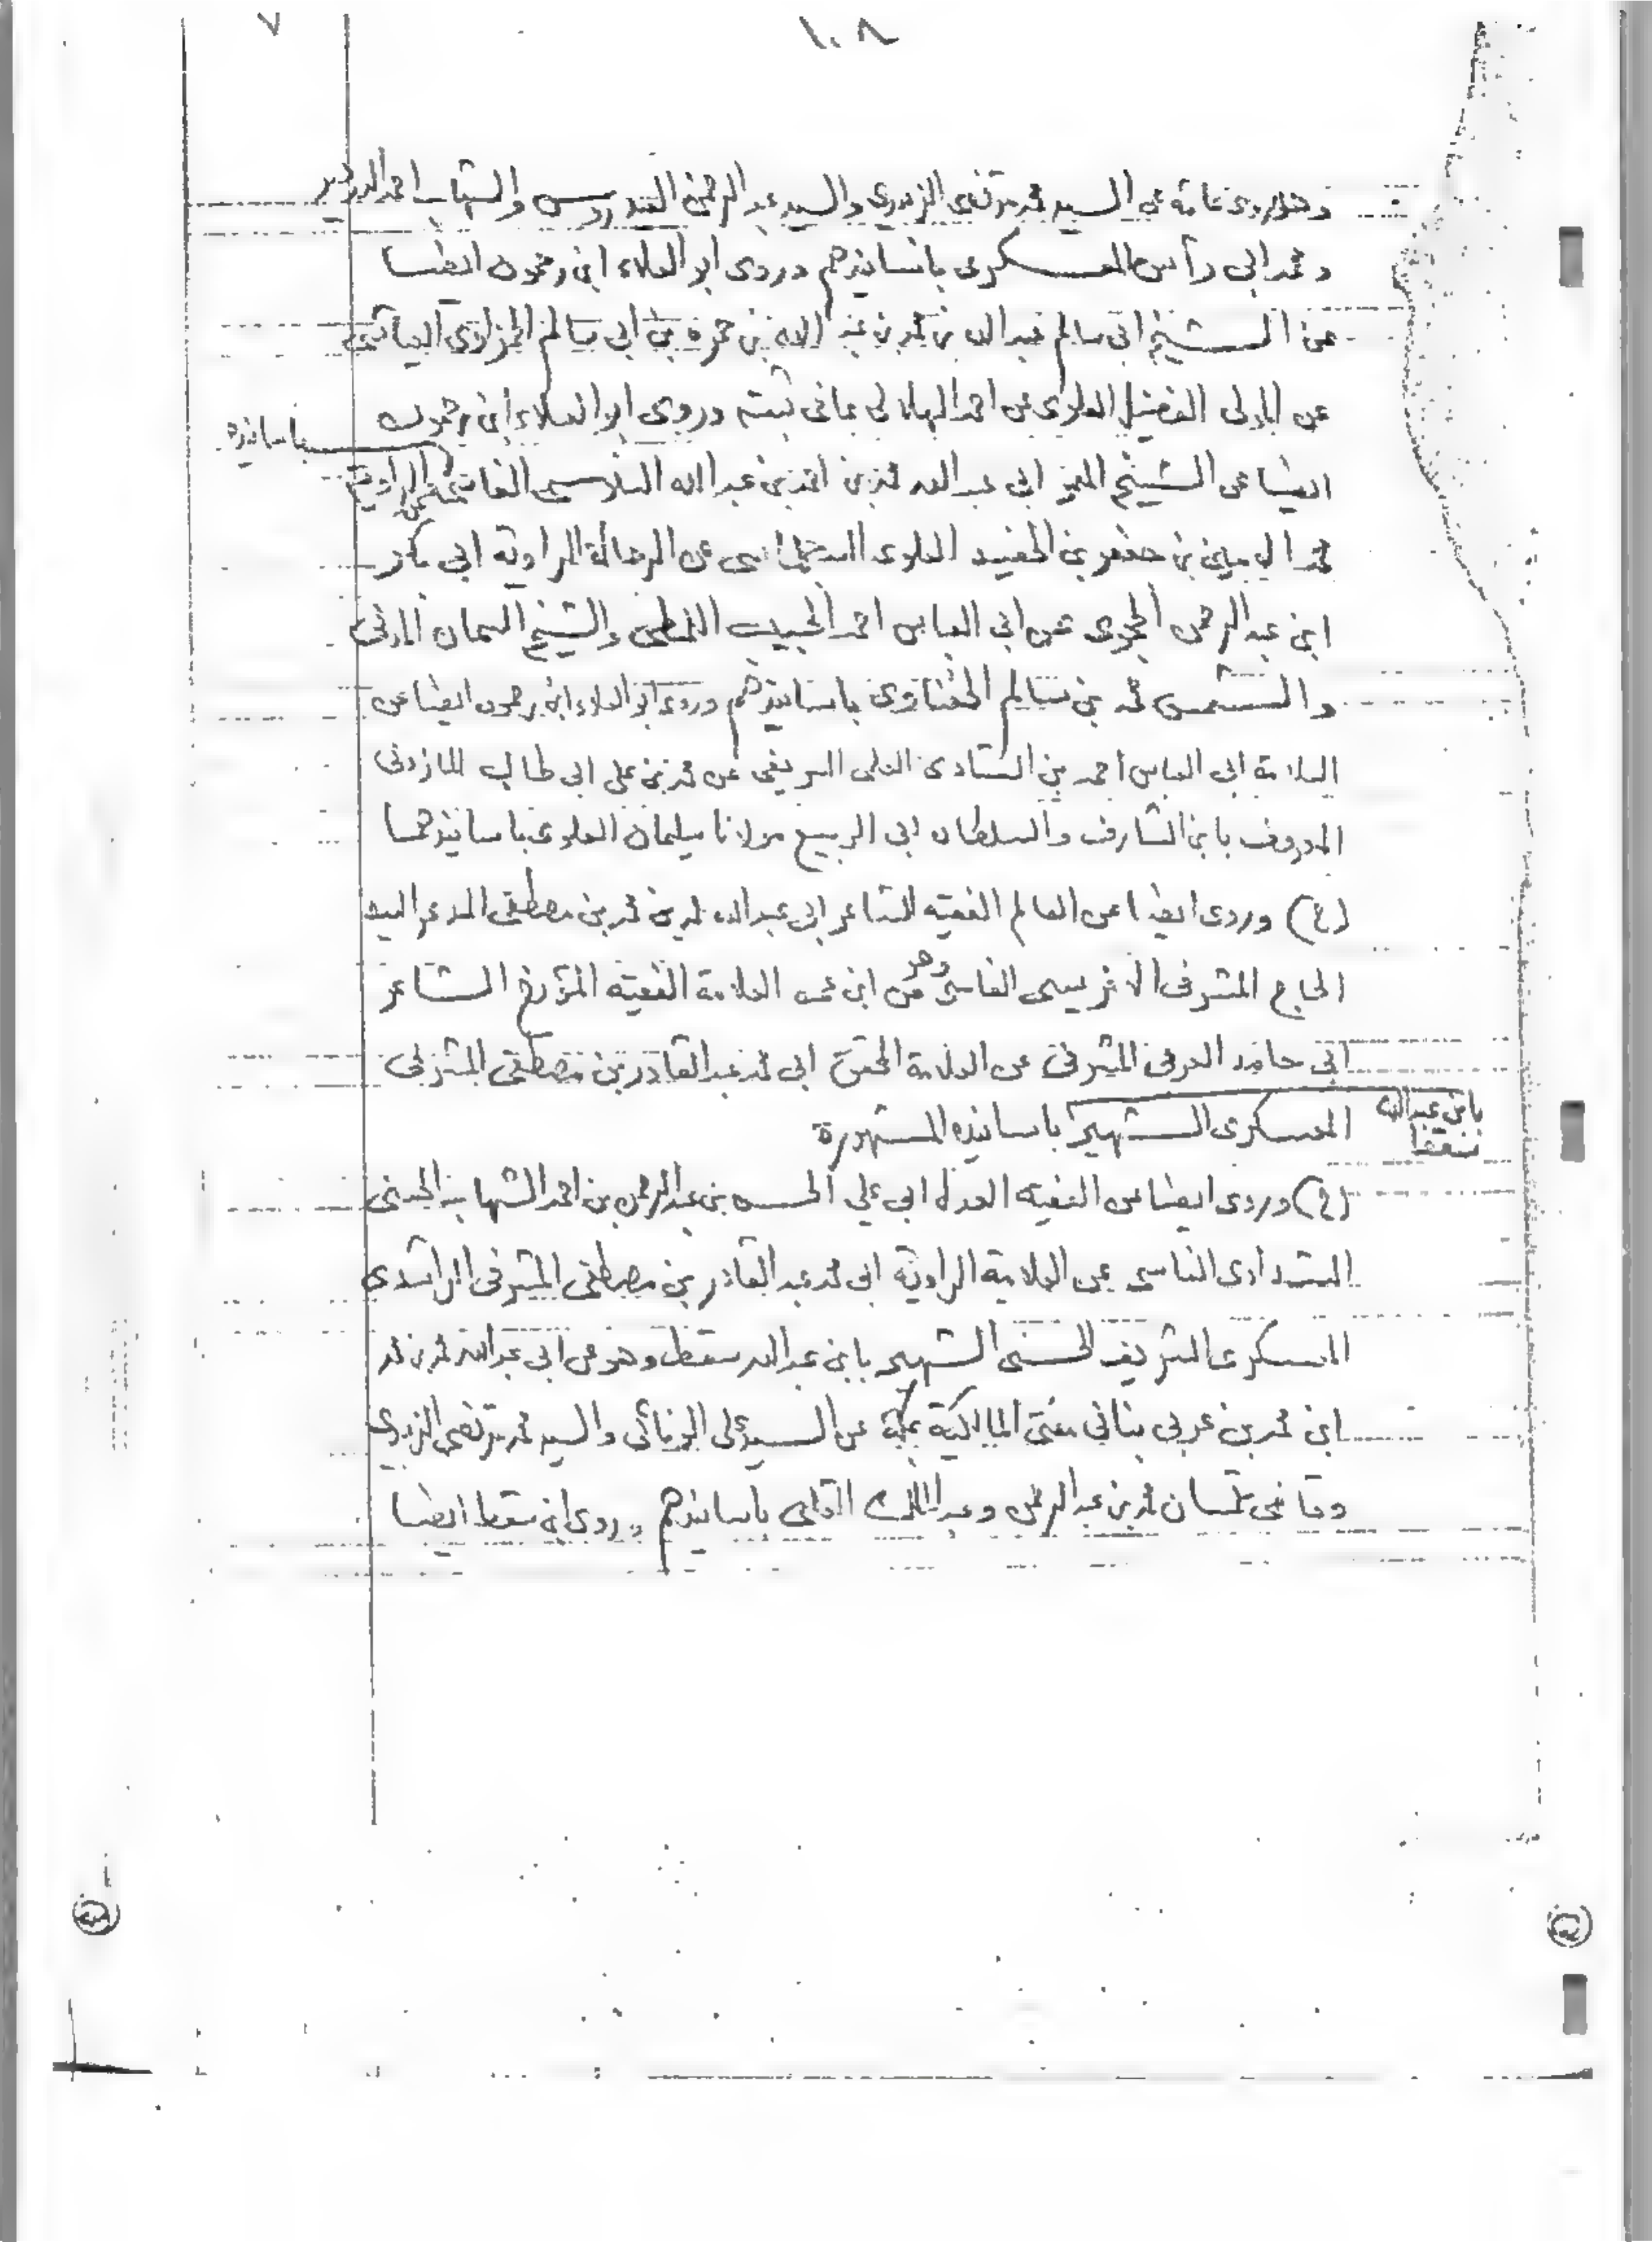 ١٠٨
٧
وهو يروي عامة عن السيد محمد مرتضى الزبيدي والسيد عبد الرحمن العيدروس والشهاب احمد الدردير
ومحمد ابي رأس المعسكري باسانيدهم وروى ابو العلاء ابن رحمون ايضا
عن الشيخ ابي سالم عبد الله بن محمد بن عبد الله بن حمزة بن ابي سالم العياشي
عن المولى الفضيل العلوي عن احمد الهلالي بما في ثبته وروى ابو العلاء ابن رحمون
باسانيده
ايضا عن الشيخ ابي عبد الله محمد بن احمد بن عبد الله الفاسي عن الراوية
محمد بن جعفر بن الحفيد العلوي السجلماسي عن الرحالة الراوية ابي بكر
ابن عبد الرحمن عن ابي العباس احمد الحبيب اللمطي والشيخ السمان المدني
والشمس محمد بن سالم الحفناوي باسانيدهم وروى ابو العلاء ابن رحمون ايضا عن
العلامة ابي العباس احمد بن عن محمد بن علي ابي طالب المازوني
المعروف بابن الشارف والسلطان ابي الربيع مولانا سليمان العلوي باسانيدهما
(ح) وروى ايضا عن العالم الفقيه الشاعر ابي عبد الله محمد بن محمد بن مصطفى المدعو السيد
الحاج المشرفي الاغريسي الفاسي وهو عن ابن عمه العلامة الفقيه المؤرخ الشاعر
ابي حامد العربي المشرفي عن العلامة المحقق ابي محمد عبد القادر بن مصطفى المشرفي
بابن عبد الله
سقط
المعسكري الشهير باسانيده المشهورة
(ح) وروى ايضا عن الفقيه العدل ابي علي الحسن بن عبد الرحمن بن احمد الشهاب الحسني
الفاسي عن العلامة الراوية ابي محمد عبد القادر بن مصطفى المشرفي الراشدي
المعسكري الشريف الحسني الشهير بابن عبد الله سقط وهو عن ابي عبد الله محمد بن محمد
ابن محمد بن عربي بناني مفتي المالكية بمكة عن السيد علي الونائي والسيد محمد مرتضى الزبيدي
وقاضي تلمسان محمد بن عبد الرحمن وعبد الملك القلعي باسانيدهم وروى ابن سقط ايضا